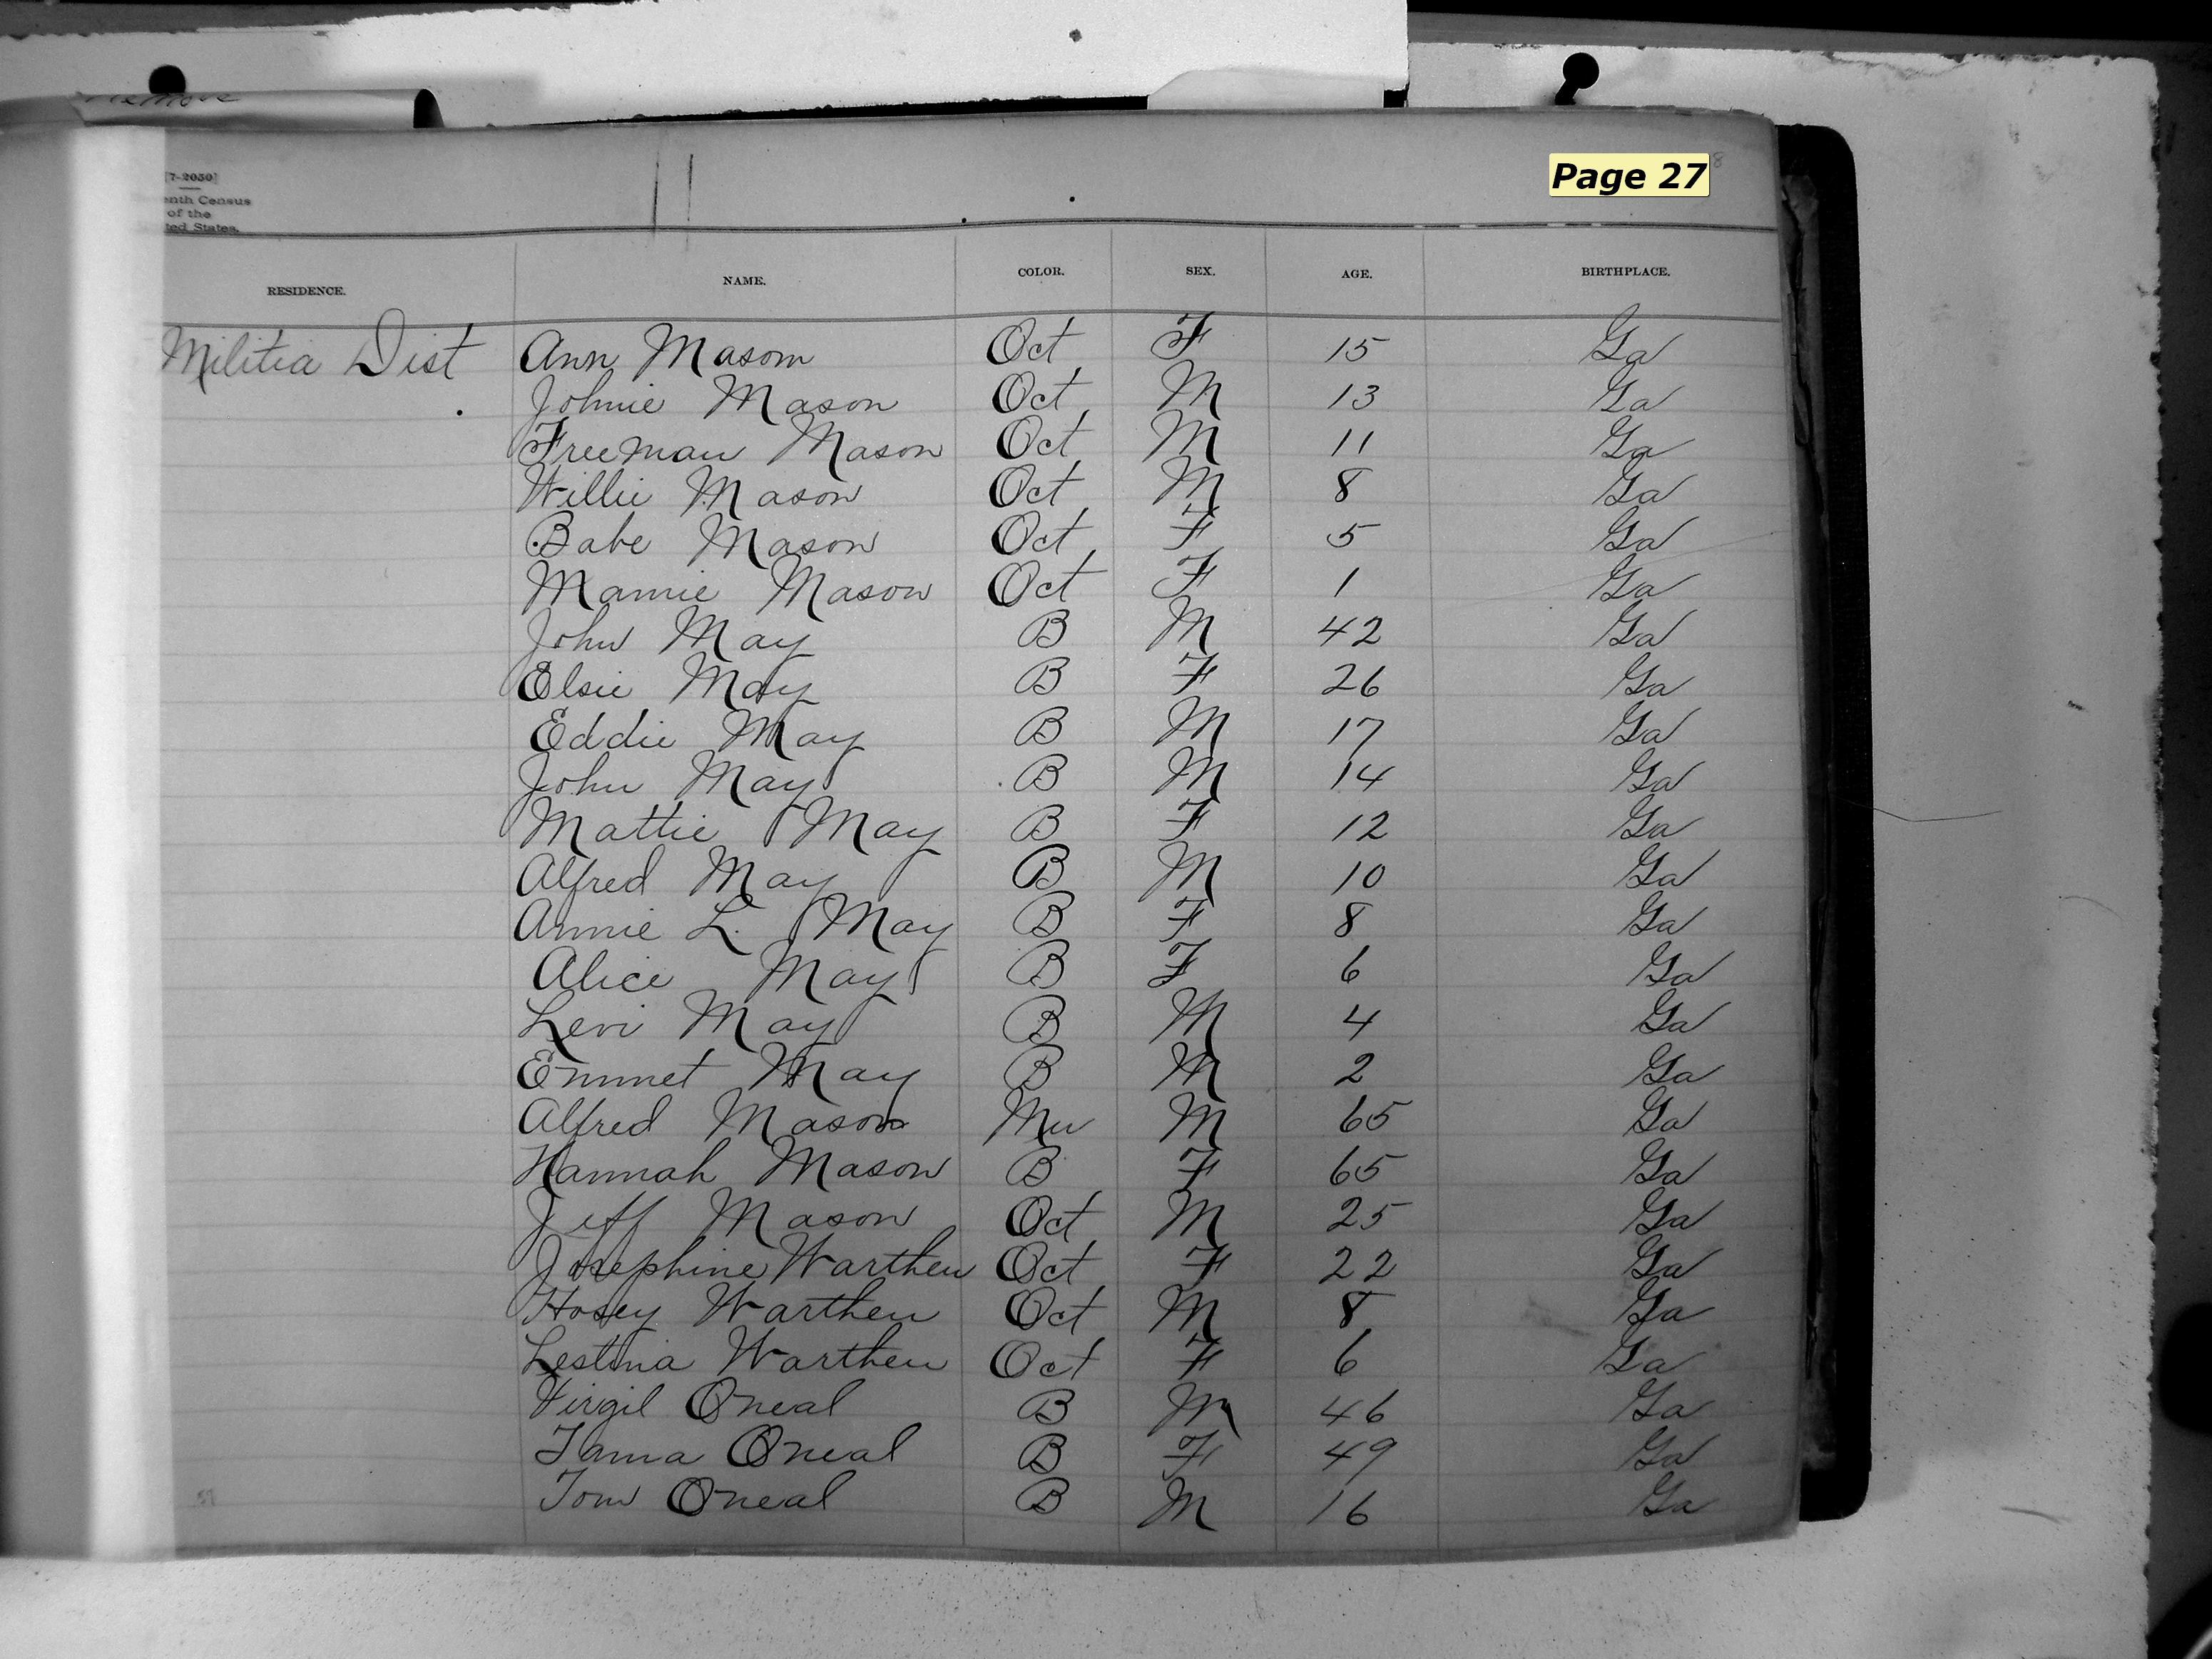 Remove
Page 27
[7-2050]
enth Census
of the
ted States.
RESIDENCE. NAME. COLOR. SEX. AGE. BIRTHPLACE.
Militia Dist Ann Mason Oct F 15 Ga
Johnie Mason Oct M 13 Ga
Freeman Mason Oct M 11 Ga
Willie Mason Oct M 8 Ga
Babe Mason Oct F 5 Ga
Mamie Mason Oct F 1 Ga
John May B M 42 Ga
Elsie May B F 26 Ga
Eddie May B M 17 Ga
John May B M 14 Ga
Mattie May B F 12 Ga
Alfred May B M 10 Ga
Annie L. May B F 8 Ga
Alice May B F 6 Ga
Levi May B M 4 Ga
Emmet May B M 2 Ga
Alfred Mason Mu M 65 Ga
Hannah Mason B F 65 Ga
Jeff Mason Oct M 25 Ga
Josephine Warthen Oct F 22 Ga
Hosey Warthen Oct M 8 Ga
Lestina Warthen Oct F 6 Ga
Virgil Oneal B M 46 Ga
Oneal B F 49 Ga
Tom Oneal B M 16 Ga